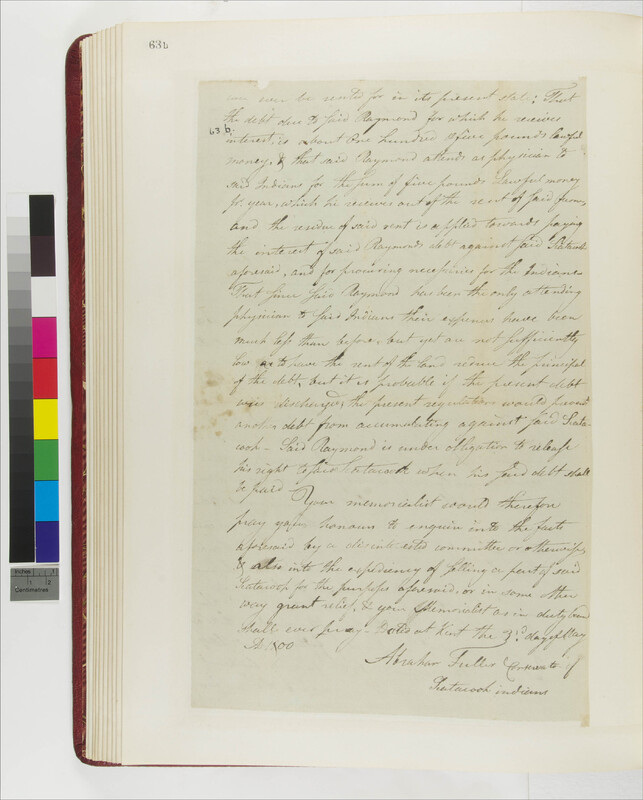 63b
63 b.
ever be rented for in its present state; That
the debt due to said Raymond for which he receives
interest, is about One hundred & five pounds lawful
money, & that said Raymond attends as physician to
said Indians for the sum of five pounds lawful money
pr. year, which he receives out of the rent of said farm,
and the residue of said rent is applied towards paying
the interest of said Raymonds debt against said Scatacook
aforesaid, and for procuring necessaries for the Indians
That since said Raymond has been the only attending
physician to said Indians their expences have been
much less than before, but yet are not sufficiently
low as to have the rent of the land reduce the principal
of the debt, but it is probable if the present debt
was discharged, the present regulations would prevent
another debt from accumulating against said Scata-
cook - Said Raymond is under obligation to release
his right to said Scatacook when his said debt shall
be paid Your memorialist would therefore
pray your honours to enquire into the facts
aforesaid by a disinterested committee or otherwise,
& also into the expediency of selling a part of said
Scatacook for the purposes aforesaid, or in some other
way grant relief, & your Memorialist as in duty bound
shall ever pray - Dated at Kent the 3d. day of May
AD 1800
Abraham Fuller Conservator of
Scatacook indians
Inches
1
2
Centimetres